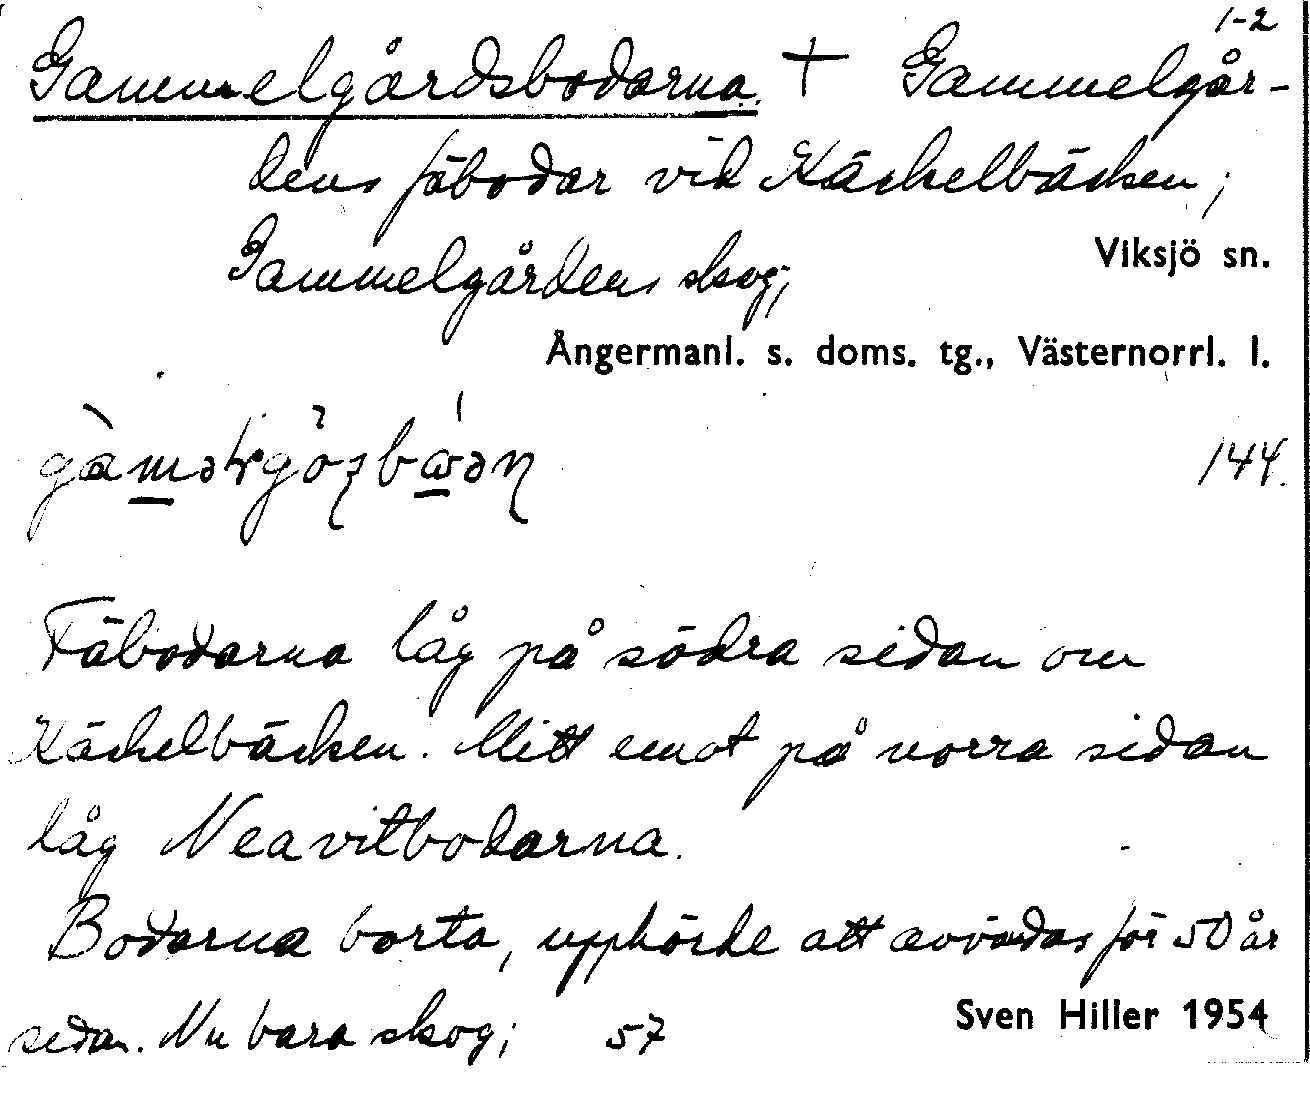 1-2
Gammelgårdsbodarna. + Gammelgår-
dens fäbodar vid Käckelbäcken;
Gammelgårdens skog;
Viksjö sn.
Ångermanl. s. doms. tg., Västernorrl. l.
144.
Fäbodarna låg på södra sidan om
Käckelbäcken. Mitt emot på norra sidan
låg Neavitbodarna.
Bodarna borta, upphörde att användas för 50 år
sedan. Nu bara skog; 57
Sven Hiller 1954